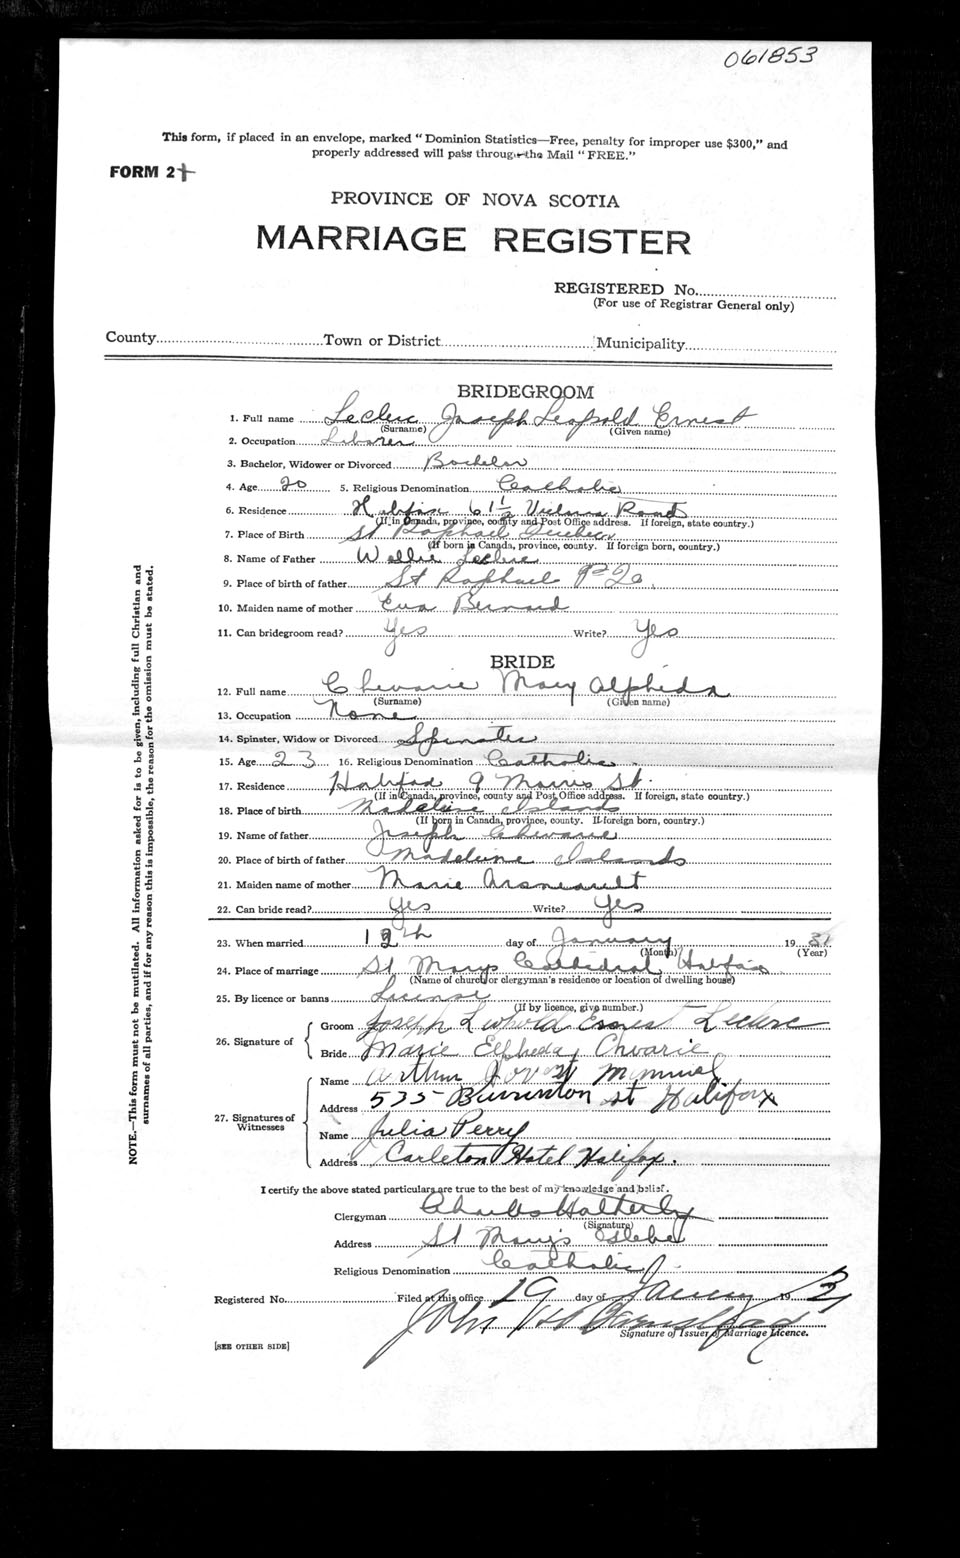 061853
This form, if placed in an envelope, marked "Dominion Statistics—Free, penalty for improper use $300," and
properly addressed will pass through the Mail "FREE."
FORM 2
PROVINCE OF NOVA SCOTIA
MARRIAGE REGISTER
REGISTERED No.
(For use of Registrar General only)
County Town or District Municipality
BRIDEGROOM
1. Full name Leclerc Joseph Leopold Ernest
(Surname) (Given name)
2. Occupation Laborer
3. Bachelor, Widower or Divorced Bachelor
4. Age 20 5. Religious Denomination Catholic
6. Residence Halifax 6 1/2 Victoria Road
(If in Canada, province, county and Post Office address. If foreign, state country.)
7. Place of Birth St Raphael Quebec
(If born in Canada, province, county. If foreign born, country.)
8. Name of Father Wellie Leclerc
9. Place of birth of father St Raphael
10. Maiden name of mother Eva Bernard
11. Can bridegroom read? Yes Write? Yes
BRIDE
12. Full name Chevarie Mary Alpheda
(Surname) (Given name)
13. Occupation None
14. Spinster, Widow or Divorced Spinster
15. Age 23 16. Religious Denomination Catholic
17. Residence Halifax 9 Morris St.
(If in Canada, province, county and Post Office address. If foreign, state country.)
18. Place of birth Madeline Islands
(If born in Canada, province, county. If foreign born, country.)
19. Name of father Joseph Chevarie
20. Place of birth of father Madeleine Islands
21. Maiden name of mother Marie Arseneault
22. Can bride read? Yes Write? Yes
23. When married 12th day of January 19 31
(Month) (Year)
24. Place of marriage St Marys Cathedral Halifax
(Name of church or clergyman's residence or location of dwelling house)
25. By licence or banns License
(If by licence, give number.)
26. Signature of
Groom Joseph Leopold Ernest Leclerc
Bride Marie Elfheda Chvarie
27. Signatures of Witnesses
Name Arthur
Address 535 Barrinton st Halifax
Name Julia Perry
Address Carleton Hotel Halifax.
I certify the above stated particulars are true to the best of my knowledge and belief.
Clergyman Charles Hatherly
(Signature)
Address St Mary's Glebe
Religious Denomination Catholic
Registered No. Filed at this office 19 day of January 19 31
John
Signature of Issuer of Marriage Licence.
[SEE OTHER SIDE]
NOTE.—This form must not be mutilated. All information asked for is to be given, including full Christian and
surnames of all parties, and if for any reason this is impossible, the reason for the omission must be stated.